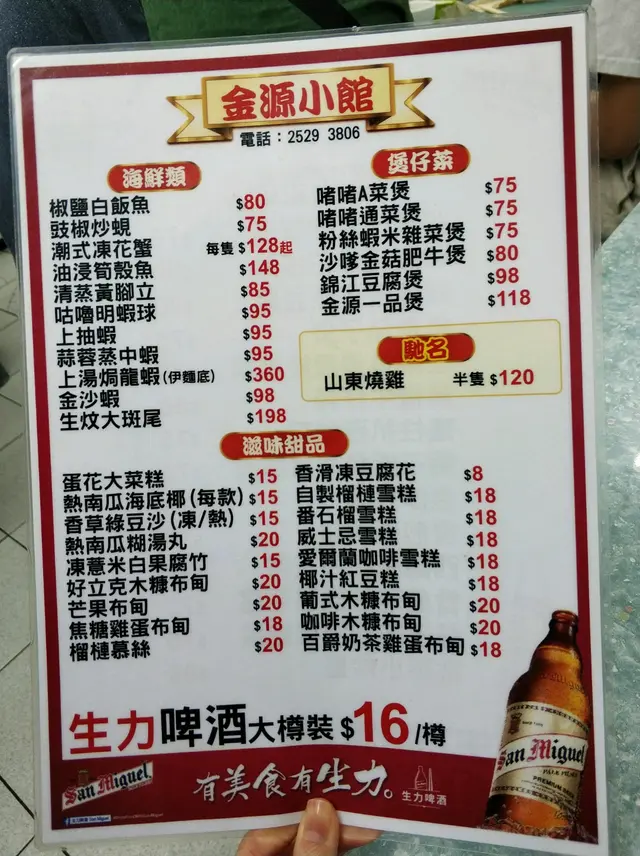 金源小館
電話：2529 3806
海鮮類
椒鹽白飯魚 $80
豉椒炒蜆 $75
潮式凍花蟹 每隻 $128起
油浸筍殼魚 $148
清蒸黃腳立 $85
咕嚕明蝦球 $95
上抽蝦 $95
蒜蓉蒸中蝦 $95
上湯焗龍蝦(伊麵底) $360
金沙蝦 $98
生炆大斑尾 $198
煲仔菜
啫啫A菜煲 $75
啫啫通菜煲 $75
粉絲蝦米雜菜煲 $75
沙嗲金菇肥牛煲 $80
錦江豆腐煲 $98
金源一品煲 $118
馳名
山東燒雞 半隻 $120
滋味甜品
蛋花大菜糕 $15
熱南瓜海底椰(每款) $15
香草綠豆沙(凍/熱) $15
熱南瓜糊湯丸 $20
凍薏米白果腐竹 $15
好立克木糠布甸 $20
芒果布甸 $20
焦糖雞蛋布甸 $18
榴槤慕絲 $20
香滑凍豆腐花 $8
自製榴槤雪糕 $18
番石榴雪糕 $18
威士忌雪糕 $18
愛爾蘭咖啡雪糕 $18
椰汁紅豆糕 $18
葡式木糠布甸 $20
咖啡木糠布甸 $20
百爵奶茶雞蛋布甸 $18
生力啤酒大樽裝 $16/樽
San Miguel
有美食有生力。
生力啤酒
San Miguel
PALE PILSEN